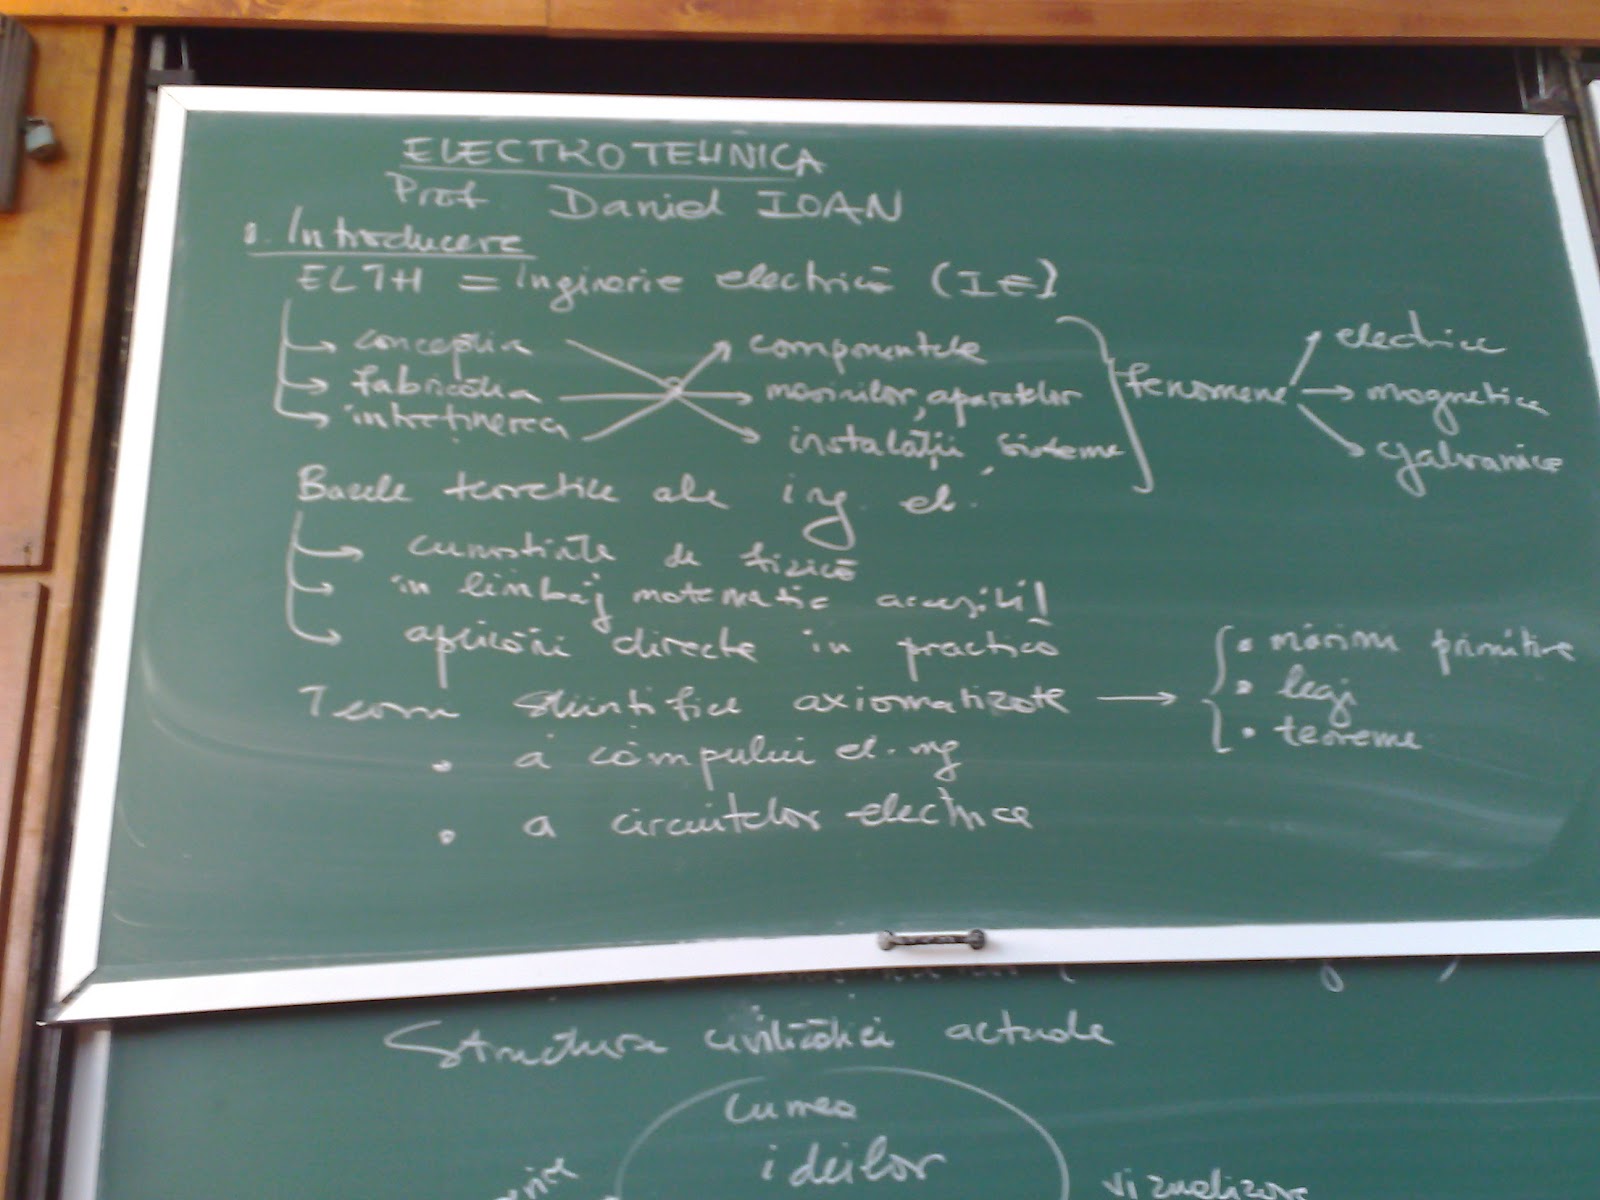 ELECTROTEHNICA
Prof Daniel IOAN
0. Introducere
ELTH = Inginerie electrică (IE)
→ concepția → componentele
→ fabricația → mașinilor, aparatelor } fenomene → electrice
→ întreținerea → instalații, sisteme → magnetice
→ galvanice
Bazele teoretice ale ing. el.
→ cunoștințe de fizică
→ în limbaj matematic accesibil!
→ aplicări directe în practica
Teorii științifice axiomatizate → { • mărimi primitive
• legi
• teoreme
• a câmpului el. mg
• a circuitelor electrice
Structura civilizației actuale
Lumea
ideilor